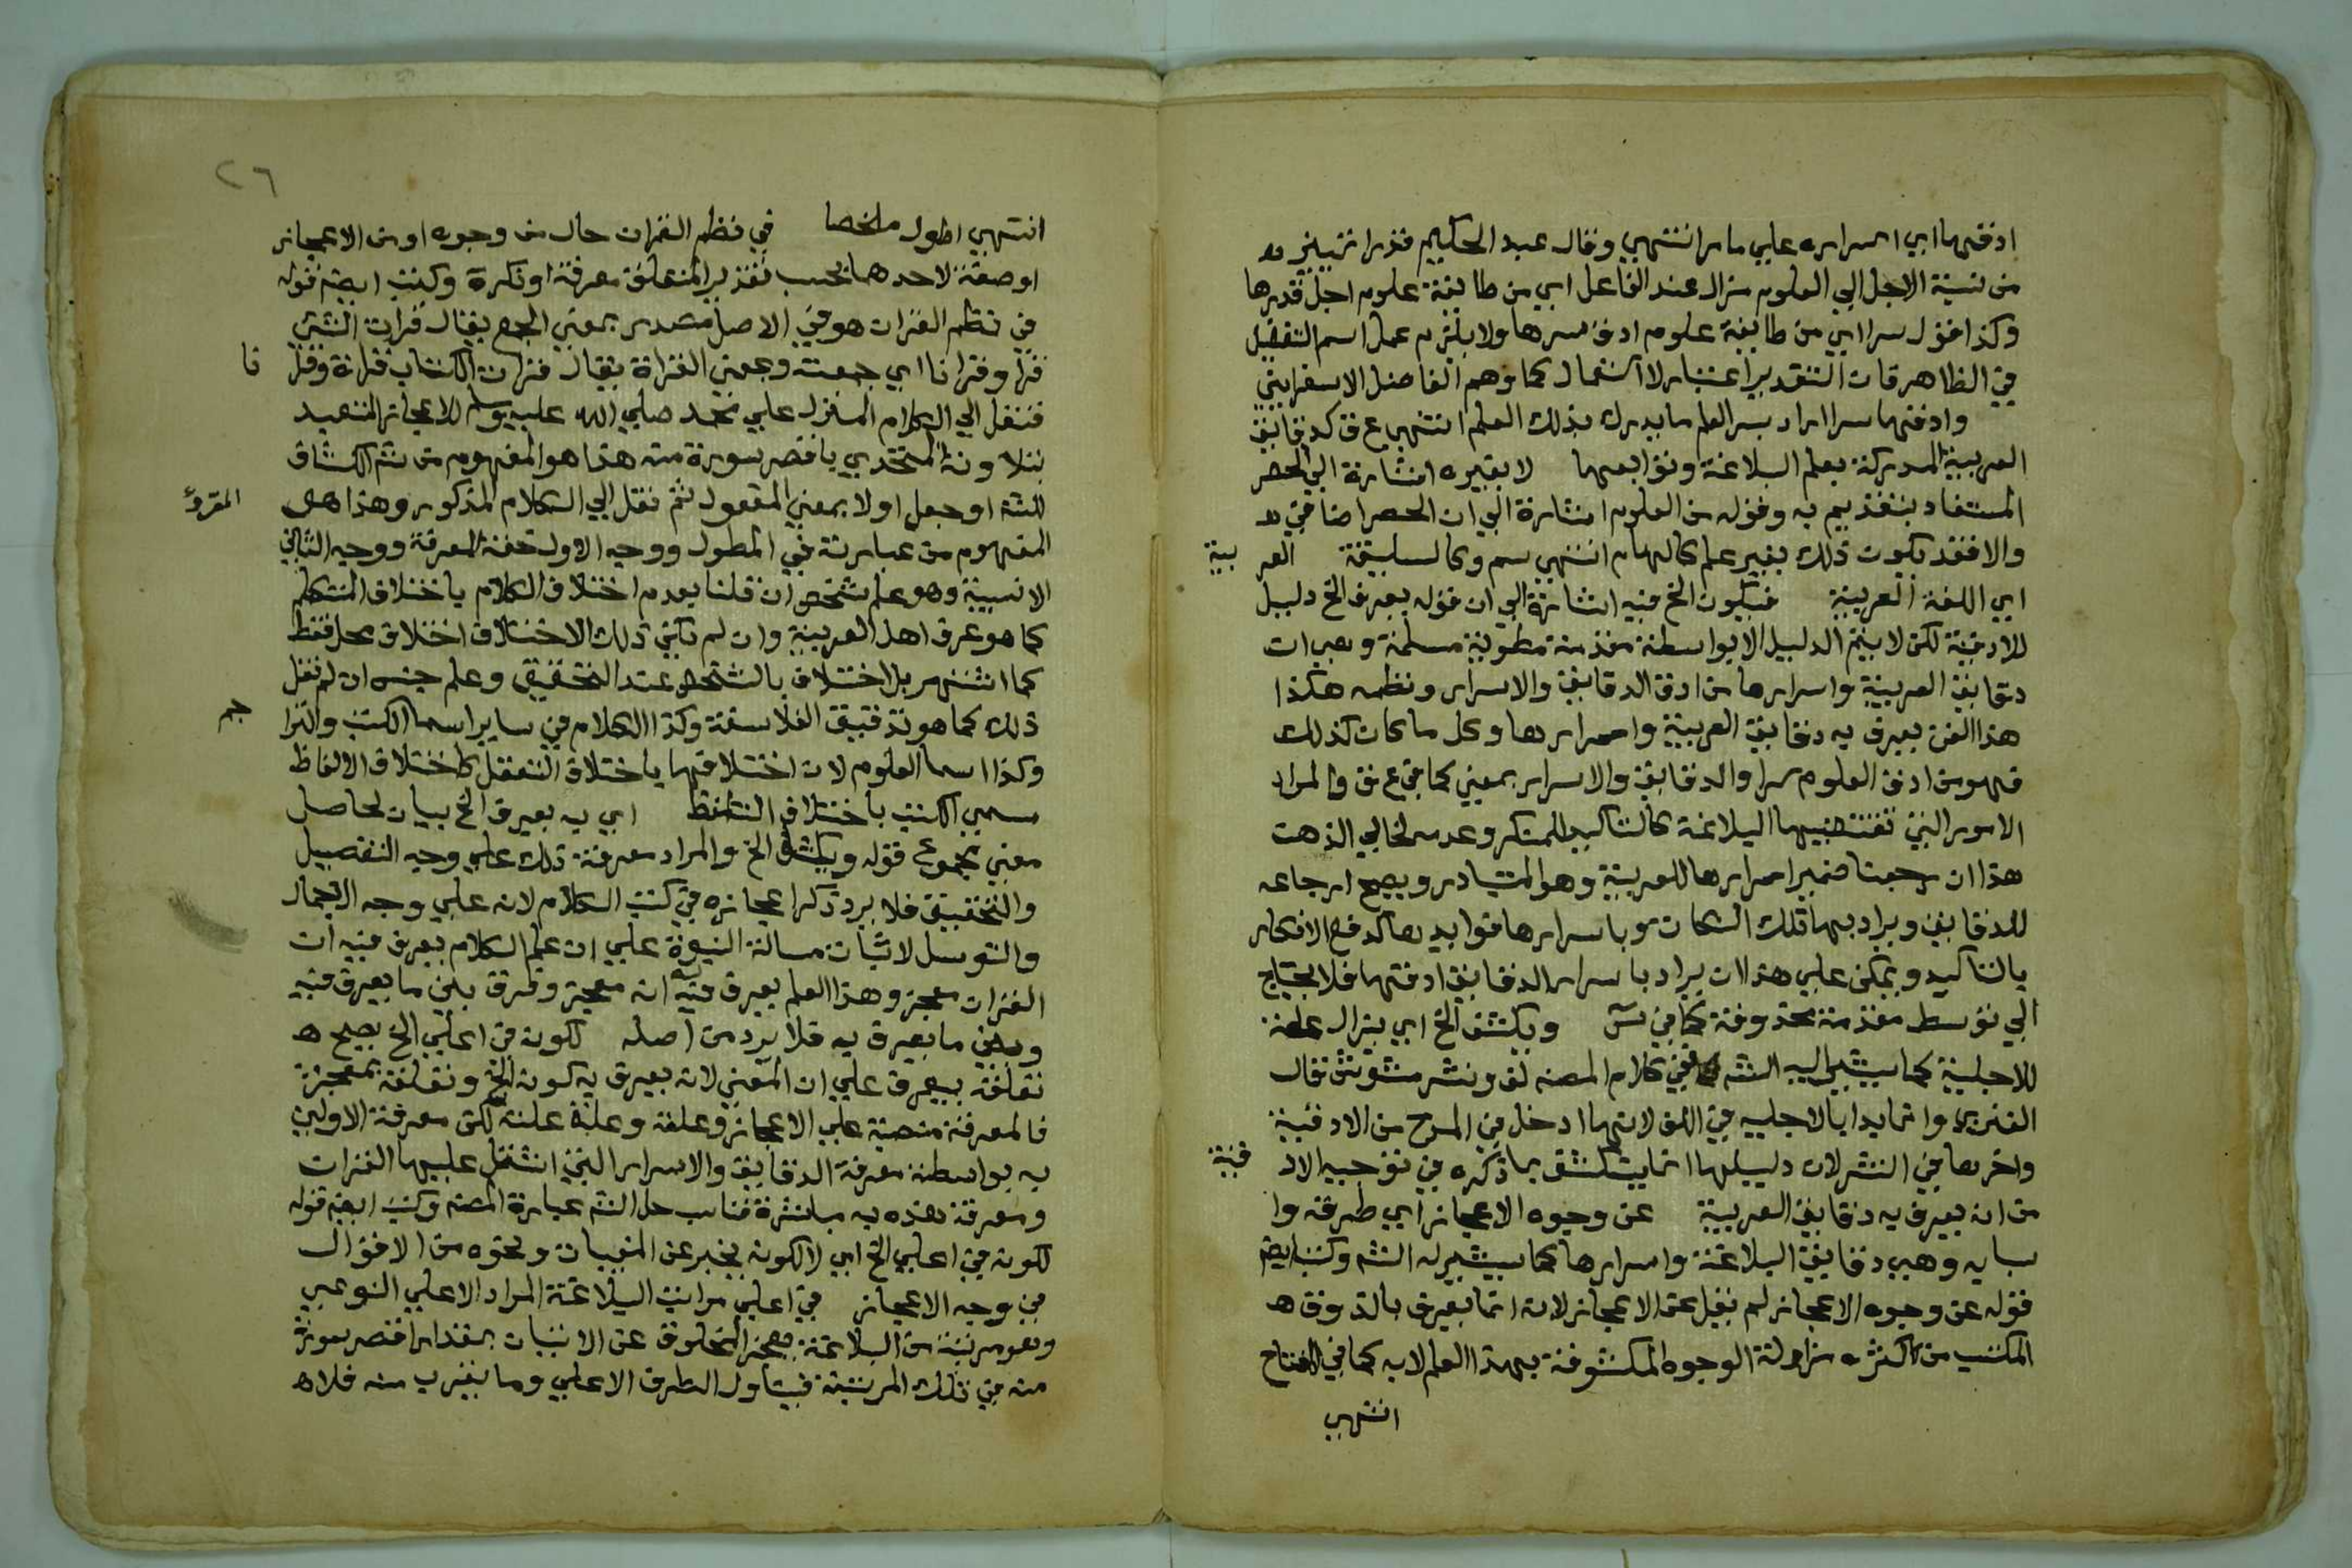 ادقها اي اسراره علي ما مر انتهي وقال عبد الحكيم قدرا تمييز
من نسبة الاجل الي العلوم منزال عند الفاعل اي من طايفة علوم اجل قدرها
وكذا قوله سرا اي من طايفة علوم ادق سرها ولا يلزم عمل اسم التفضيل
في الظاهر فان التقدير اعتبار لا استعمال كما وهم الفاضل الاسفرايني
وادقها سرا اراد بسر العلم ما يدرك بذلك العلم انتهي ع ق كدقايق
العربية المدركة بعلم البلاغة وتوابعها لا بغيره اشارة الي الحصر
المستفاد بتقديم به وقوله من العلوم اشارة الي ان الحصر اضافي
والا فقد يكون ذلك بغير علم كالهام انتهي سم وكالسليقة العر بية
اي اللغة العربية فيكون الخ فيه اشارة الي ان قوله يعرف الخ دليل
للادقية لكن لا يتم الدليل الا بواسطة مقدمة مطوية مسلمة وهي ان
دقايق العربية واسرارها من ادق الدقايق والاسرار ونظمه هكذا
هذا الفن يعرف به دقايق العربية واسرارها وكل ما كان كذلك
فهو من ادق العلوم سرا والدقايق والاسرار بمعني كما في ع ق والمراد
الامور التي تقتضيها البلاغة كالتاكيد للمنكر وعدمه لخالي الذهن
هذا ان رجعنا ضمير اسرارها للعربية وهو المتبادر ويصح ارجاعه
للدقايق ويراد بها تلك النكات وباسرارها فوايدها كدفع الانكار
بالتاكيد ويمكن علي هذا ان يراد باسرار الدقايق ادقها فلا يحتاج
الي توسط مقدمة محذوفة كما في يس ويكشف الخ اي يزال علة
للاجلية كما يشير اليه الشه ففي كلام المصنه لف ونشر مشوش قال
الفنري وانما بدا بالاجليه في اللف لانها ادخل في المدح من الادقية
واخرها في النشر لان دليلها انما ينكشف بما ذكره في توجيه الاد قية
من انه يعرف به دقايق العربية عن وجوه الاعجاز اي طرقه وا
سبابه وهي دقايق البلاغة واسرارها كما يشير له الشه وكتب ايضم
قوله عن وجوه الاعجاز لم يقل عن الاعجاز لانه انما يعرف بالذوق
المكتسب من اكثره مزاولة الوجوه المكشوفة بهذا العلم لا به كما في المفتاح
انتهي
٢٦
انتهي اطول ملخصا في نظم القران حال من وجوه او من الاعجاز
او صفة لاحدهما بحسب تقدير المتعلق معرفة او نكرة وكتب ايضم قوله
في نظم القران هو في الاصل مصدر بمعني الجمع يقال قرات الشئ
قرا وقرانا اي جمعت وبمعني القراة يقال قرات الكتاب قراة وقرا نا
فنقل الي الكلام المنزل علي محمد صلي الله عليه وسلم للاعجاز المتعبد
بتلاوته المتحدي باقصر سورة منه هذا هو المفهوم من شم الكشاف
للشه او جعل اولا بمعني المفعول ثم نقل الي الكلام المذكور وهذا هو المقروء
المفهوم من عبارته في المطول ووجه الاول خفة المعرفة ووجه الثاني
الانسبية وهو علم شخص ان قلنا بعدم اختلاف الكلام باختلاف المتكلم
كما هو عرف اهل العربية وان لم يكن ذلك الاختلاف اختلاف محل فقط
كما اشتهر بل اختلاف بالشخص عند التحقيق وعلم جنس ان لم نقل
ذلك كما هو تدقيق الفلاسفة وكذا الكلام في ساير اسما الكتب والترا جم
وكذا اسما العلوم لان اختلافها باختلاف التعقل كاختلاف الالفاظ
مسمي الكتب باختلاف التلفظ اي به يعرف الخ بيان لحاصل
معني مجموع قوله ويكشف الخ والمراد معرفة ذلك علي وجه التفصيل
والتحقيق فلا يرد ذكر اعجازه في كتب الكلام لانه علي وجه الاجمال
والتوسل لاثبات مسالة النبوة علي ان علم الكلام يعرف فيه ان
القران معجز وهذا العلم يعرف به انه معجز وفرق بين ما يعرف فيه
وبين ما يعرف به فلا يرد من اصله لكونه في اعلي الخ يصح
تعلقه بيعرف علي ان المعني لانه يعرف به كونه الخ وتعلقه بمعجز
فالمعرفة منصبة علي الاعجاز وعلته وعلة علته لكن معرفة الاولين
به بواسطة معرفة الدقايق والاسرار التي اشتمل عليها القران
ومعرفة هذه به مباشرة فناسب حل الشه عبارة المصنه وكتب ايضم قوله
لكونه في اعلي الخ اي لا لكونه يخبر عن المغيبات ونحوه من الاقوال
في وجه الاعجاز في اعلي مراتب البلاغة المراد الاعلي النوعي
وهو مرتبة من البلاغة يعجز المخلوق عن الاتيان بمقدار اقصر سورة
منه في تلك المرتبة فيتناول الطرف الاعلي وما يقرب منه فلا